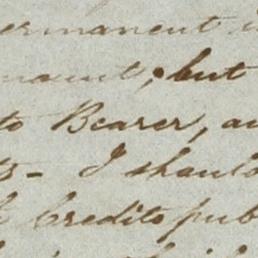 ermanent i
mount, but
to Bearer, an
ts - I should
Credits pub